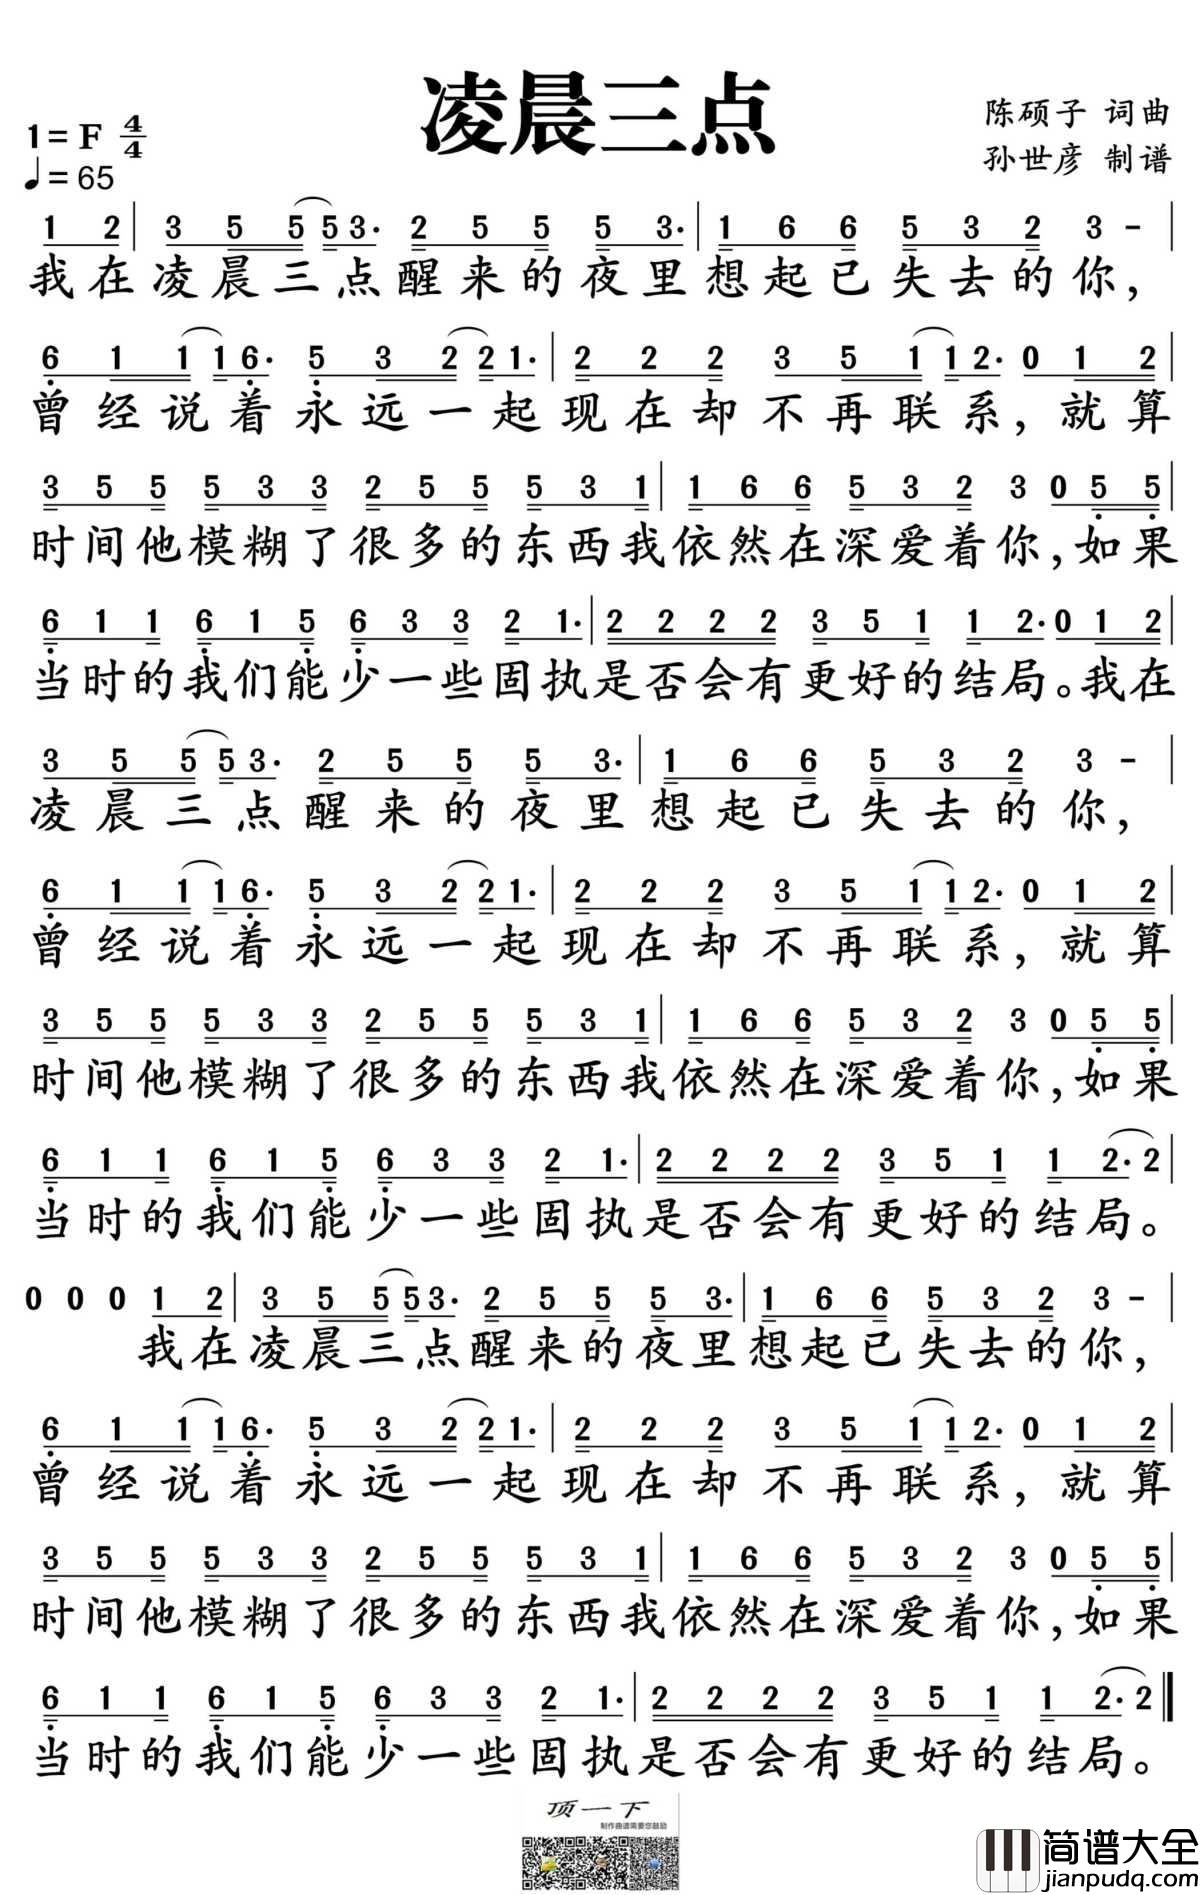 凌晨三点
1=F 4/4
♩=65
陈硕子 词曲
孙世彦 制谱
1 2 | 3 5 5 5 3. 2 5 5 5 3. | 1 6 6 5 3 2 3 - |
我在凌晨三点醒来的夜里想起已失去的你,
6 1 1 1 6. 5 3 2 2 1. | 2 2 2 3 5 1 1 2. 0 1 2 |
曾经说着永远一起现在却不再联系,就算
3 5 5 5 3 3 2 5 5 5 3 1 | 1 6 6 5 3 2 3 0 5 5 |
时间他模糊了很多的东西我依然在深爱着你,如果
6 1 1 6 1 5 6 3 3 2 1. | 2 2 2 2 3 5 1 1 2. 0 1 2 |
当时的我们能少一些固执是否会有更好的结局。我在
3 5 5 5 3. 2 5 5 5 3. | 1 6 6 5 3 2 3 - |
凌晨三点醒来的夜里想起已失去的你,
6 1 1 1 6. 5 3 2 2 1. | 2 2 2 3 5 1 1 2. 0 1 2 |
曾经说着永远一起现在却不再联系,就算
3 5 5 5 3 3 2 5 5 5 3 1 | 1 6 6 5 3 2 3 0 5 5 |
时间他模糊了很多的东西我依然在深爱着你,如果
6 1 1 6 1 5 6 3 3 2 1. | 2 2 2 2 3 5 1 1 2. 2 |
当时的我们能少一些固执是否会有更好的结局。
0 0 0 1 2 | 3 5 5 5 3. 2 5 5 5 3. | 1 6 6 5 3 2 3 - |
我在凌晨三点醒来的夜里想起已失去的你,
6 1 1 1 6. 5 3 2 2 1. | 2 2 2 3 5 1 1 2. 0 1 2 |
曾经说着永远一起现在却不再联系,就算
3 5 5 5 3 3 2 5 5 5 3 1 | 1 6 6 5 3 2 3 0 5 5 |
时间他模糊了很多的东西我依然在深爱着你,如果
6 1 1 6 1 5 6 3 3 2 1. | 2 2 2 2 3 5 1 1 2. 2 ‖
当时的我们能少一些固执是否会有更好的结局。
顶一下
制作曲谱需要您鼓励
简谱大全
jianpudq.com